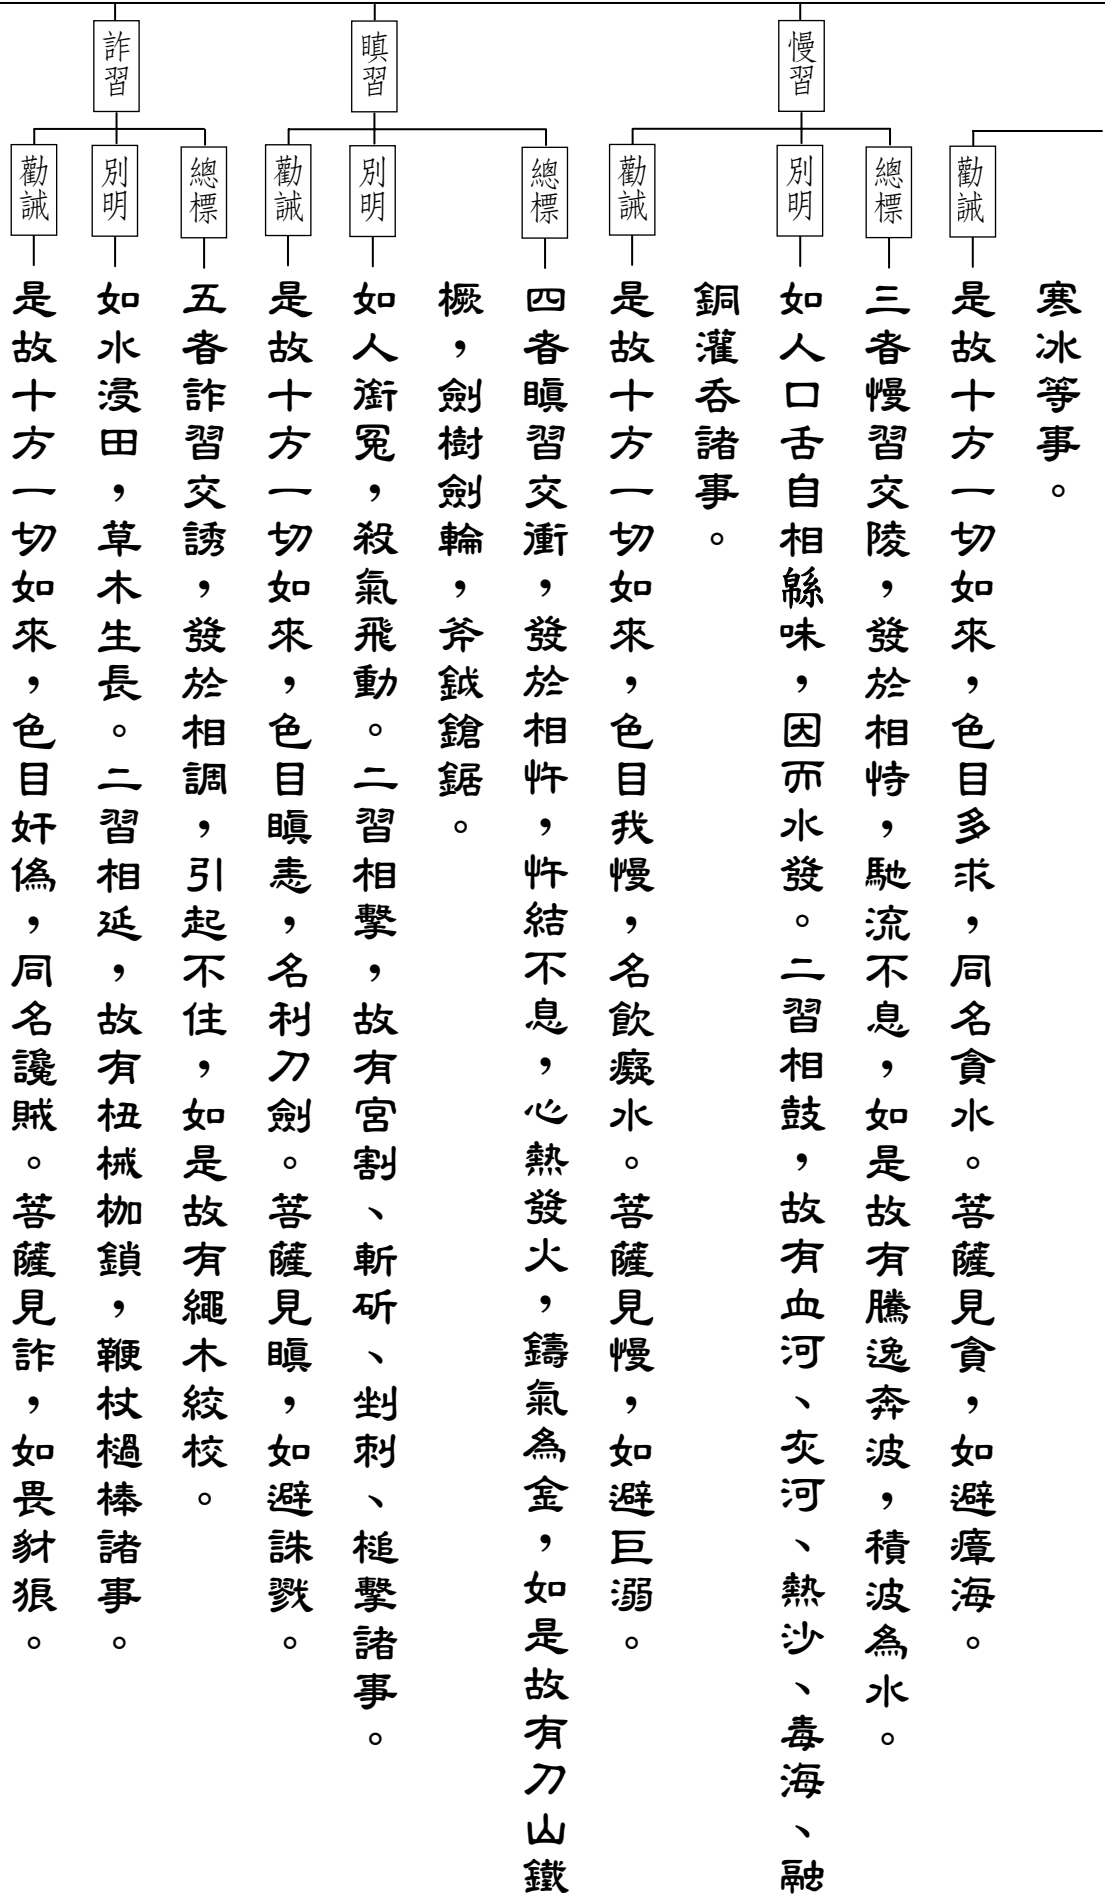 寒冰等事。
勸誡
是故十方一切如來，色目多求，同名貪水。菩薩見貪，如避瘴海。
慢習
總標
三者慢習交陵，發於相恃，馳流不息，如是故有騰逸奔波，積波為水。
別明
如人口舌自相緜味，因而水發。二習相鼓，故有血河、灰河、熱沙、毒海、融
銅灌吞諸事。
勸誡
是故十方一切如來，色目我慢，名飲癡水。菩薩見慢，如避巨溺。
瞋習
總標
四者瞋習交衝，發於相忤，忤結不息，心熱發火，鑄氣為金，如是故有刀山鐵
橛，劍樹劍輪，斧鉞鎗鋸。
別明
如人銜冤，殺氣飛動。二習相擊，故有宮割、斬斫、剉刺、槌擊諸事。
勸誡
是故十方一切如來，色目瞋恚，名利刀劍。菩薩見瞋，如避誅戮。
詐習
總標
五者詐習交誘，發於相調，引起不住，如是故有繩木絞校。
別明
如水浸田，草木生長。二習相延，故有杻械枷鎖，鞭杖檛棒諸事。
勸誡
是故十方一切如來，色目奸偽，同名讒賊。菩薩見詐，如畏豺狼。